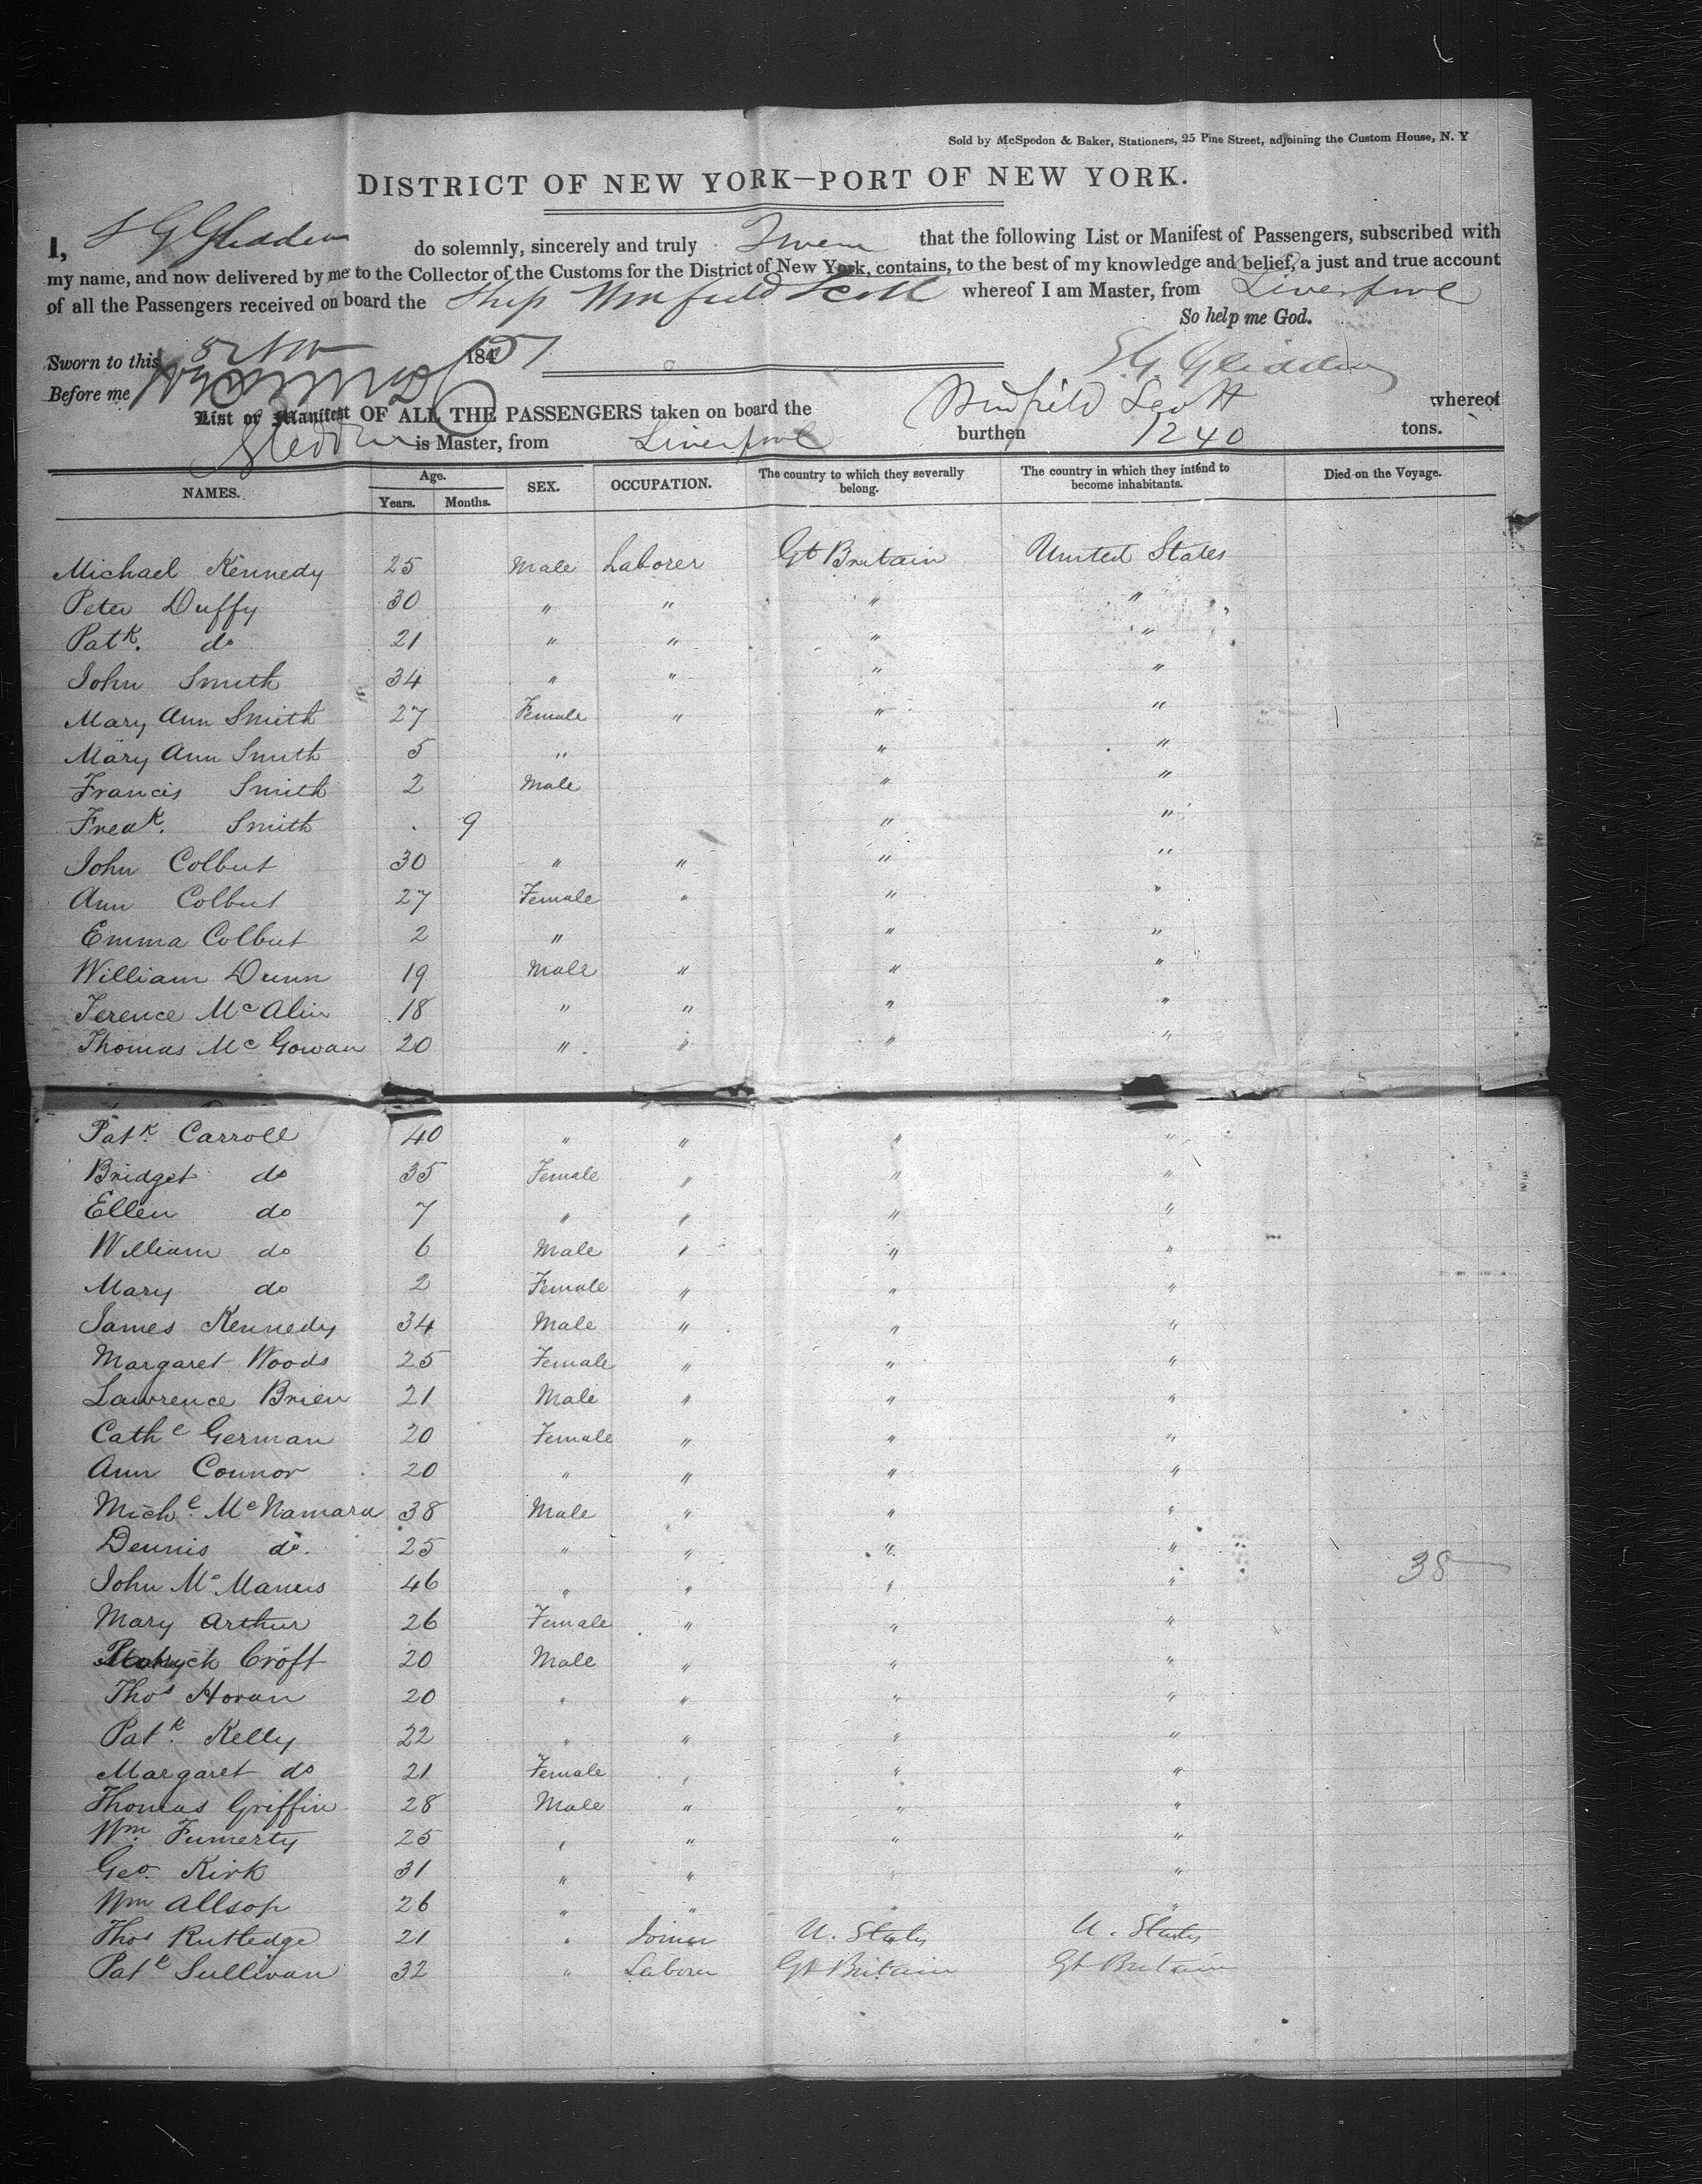 Sold by McSpedon & Baker, Stationers, 25 Pine Street, adjoining the Custom House, N. Y
DISTRICT OF NEW YORK—PORT OF NEW YORK.
I, S G Glidden do solemnly, sincerely and truly Swear that the following List or Manifest of Passengers, subscribed with
my name, and now delivered by me to the Collector of the Customs for the District of New York, contains, to the best of my knowledge and belief, a just and true account
of all the Passengers received on board the Ship Winfield Scott whereof I am Master, from Liverpool
So help me God.
Sworn to this 184 51
S. G. Glidden
Before me
List or Manifest OF ALL THE PASSENGERS taken on board the Winfield Scott whereof
Gledden is Master, from Liverpool burthen 1240 tons.
NAMES. Age. Years. Months. SEX. OCCUPATION. The country to which they severally belong. The country in which they intend to become inhabitants. Died on the Voyage.
Michael Kennedy 25 Male Laborer Gt Britain United States
Peter Duffy 30 " " " "
Patk. do 21 " " " "
John Smith 34 " " " "
Mary Ann Smith 27 Female " " "
Mary Ann Smith 5 " " "
Francis Smith 2 Male " "
Fredk. Smith 9 " "
John Colbut 30 " " " "
Ann Colbut 27 Female " " "
Emma Colbut 2 " " "
William Dunn 19 Male " " "
Terence McAlin 18 " " " "
Thomas McGowan 20 " " " "
Patk. Carroll 40 " " " "
Bridget do 35 Female " " "
Ellen do 7 " " " "
William do 6 Male " " "
Mary do 2 Female " " "
James Kennedy 34 Male " " "
Margaret Woods 25 Female " " "
Lawrence Brien 21 Male " " "
Cathe German 20 Female " " "
Ann Connor 20 " " " "
Michl. McNamara 38 Male " " "
Dennis do. 25 " " " "
John McManus 46 " " " " 38
Mary Arthur 26 Female " " "
Patrick Croft 20 Male " " "
Thos Horan 20 " " " "
Patk. Kelly 22 " " " "
Margaret do 21 Female " " "
Thomas Griffin 28 Male " " "
Wm. Fumerty 25 " " " "
Geo. Kirk 31 " " " "
Wm Allsop 26 " " " "
Thos Rutledge 21 " Joiner U. States U. States
Patk Sullivan 32 " Laborer Gt Britain Gt Britain